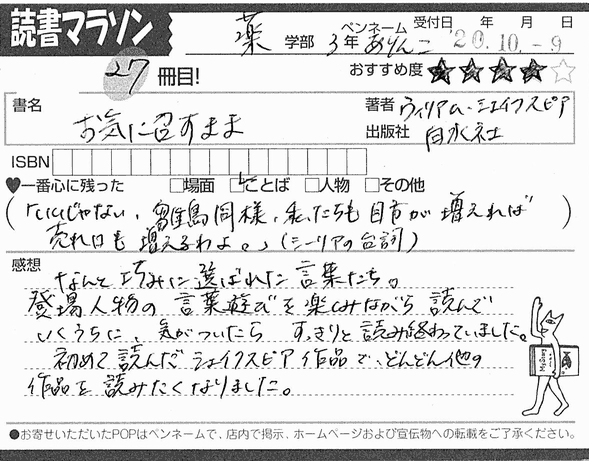 読書マラソン
薬 学部 3年 ペンネーム ありんこ 受付日 年 月 日 '20.10.-9
27 冊目! おすすめ度 ★★★★☆
書名 お気に召すまま
著者 ウィリアム・シェイクスピア
出版社 白水社
ISBN
♥一番心に残った □場面 ☑ことば □人物 □その他
(「いいじゃない、雛鳥同様、私たちも目方が増えれば
売れ口も増えるわよ。」(シーリアの台詞))
感想
なんと巧みに選ばれた言葉たち。
登場人物の言葉遊びを楽しみながら読んで
いくうちに、気がついたら すっきりと読み終わっていました。
初めて読んだシェイクスピア作品で、どんどん他の
作品を読みたくなりました。
●お寄せいただいたPOPはペンネームで、店内で掲示、ホームページおよび宣伝物への転載をご了承ください。